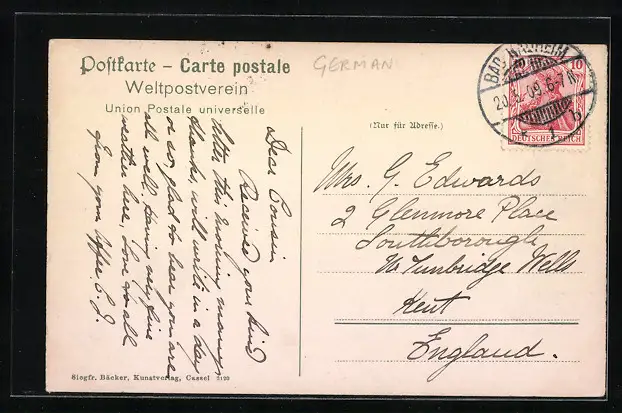 Postkarte – Carte postale
Weltpostverein
Union Postale universelle
GERMAN
BAD NAUHEIM
20.5.09.6-7N
* 1 b
10
DEUTSCHES REICH
(Nur für Adresse.)
Dear Cousin
Received your kind
letter this morning many
thanks, will write in a day
or so, glad to hear you are
all well. Having very fine
weather here, love to all
from your
Mrs. G. Edwards
2 Glenmore Place
Southborough
Nr Tunbridge Wells
Kent
England.
Siegfr. Bäcker, Kunstverlag, Cassel